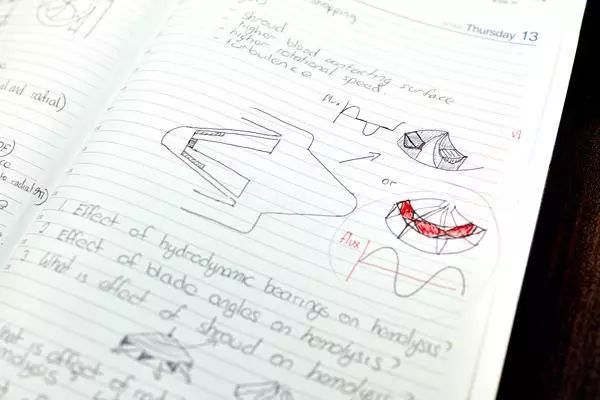 stopping
Thursday 13
- shroud
- higher blood contacting surface
- higher rotational speed.
- turbulence.
and radial)
flux
or
to radial
flux
1. Effect of hydrodynamic bearings on hemolysis?
2. Effect of blade angles on hemolysis?
3. What is effect of shroud on hemolysis?
What is effect of